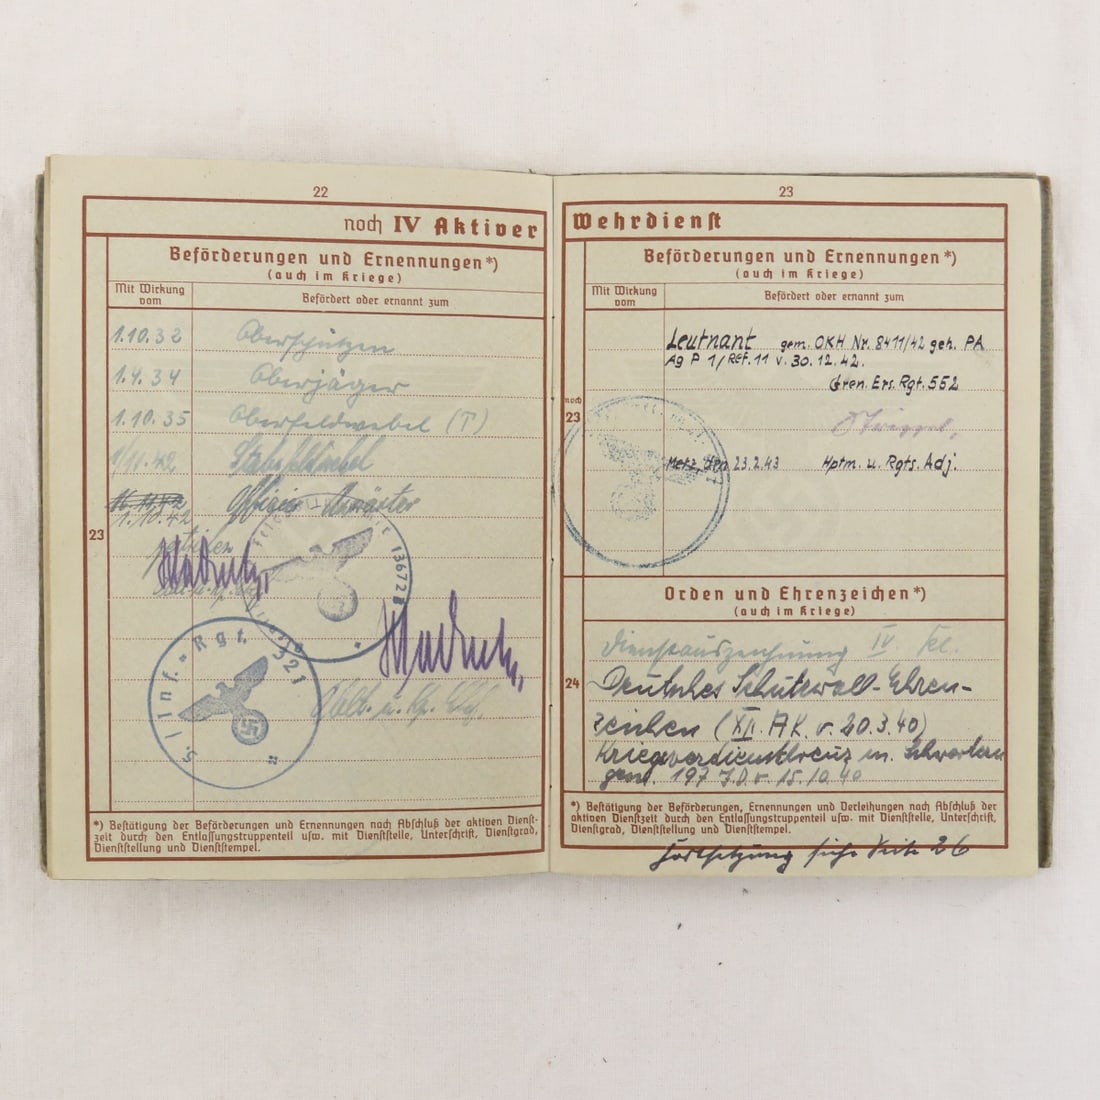 22
noch IV Aktiver
Beförderungen und Ernennungen*)
(auch im Kriege)
Mit Wirkung vom
Befördert oder ernannt zum
1.10.32 Oberschützen
1.4.34 Oberjäger
1.10.35 Oberfeldwebel (T)
1.11.42 Stabsfeldwebel
16.11.42 Offizier-Anwärter
1.10.42
23
13672
5./Inf.=Rgt. 321
Oblt. u. Kp. Chef.
*) Bestätigung der Beförderungen und Ernennungen nach Abschluß der aktiven Dienst-
zeit durch den Entlassungstruppenteil usw. mit Dienststelle, Unterschrift, Dienstgrad,
Dienststellung und Dienststempel.
23
Wehrdienst
Beförderungen und Ernennungen*)
(auch im Kriege)
Mit Wirkung vom
Befördert oder ernannt zum
Leutnant gem. OKH Nr. 8411/42 geh. PA
Ag P 1/Ref. 11 v. 30.12.42.
Gren. Ers. Rgt. 552
noch
23
Metz, den 23.2.43 Hptm. u. Rgts. Adj.
Orden und Ehrenzeichen*)
(auch im Kriege)
24
Dienstauszeichnung IV. Kl.
Deutsches Schutzwall-Ehren-
zeichen (XII. AK. v. 20.3.40)
Kriegsverdienstkreuz m. Schwertern
gem. 197 J.D. v. 15.10.40
*) Bestätigung der Beförderungen, Ernennungen und Verleihungen nach Abschluß der
aktiven Dienstzeit durch den Entlassungstruppenteil usw. mit Dienststelle, Unterschrift,
Dienstgrad, Dienststellung und Dienststempel.
Fortsetzung siehe Seite 26